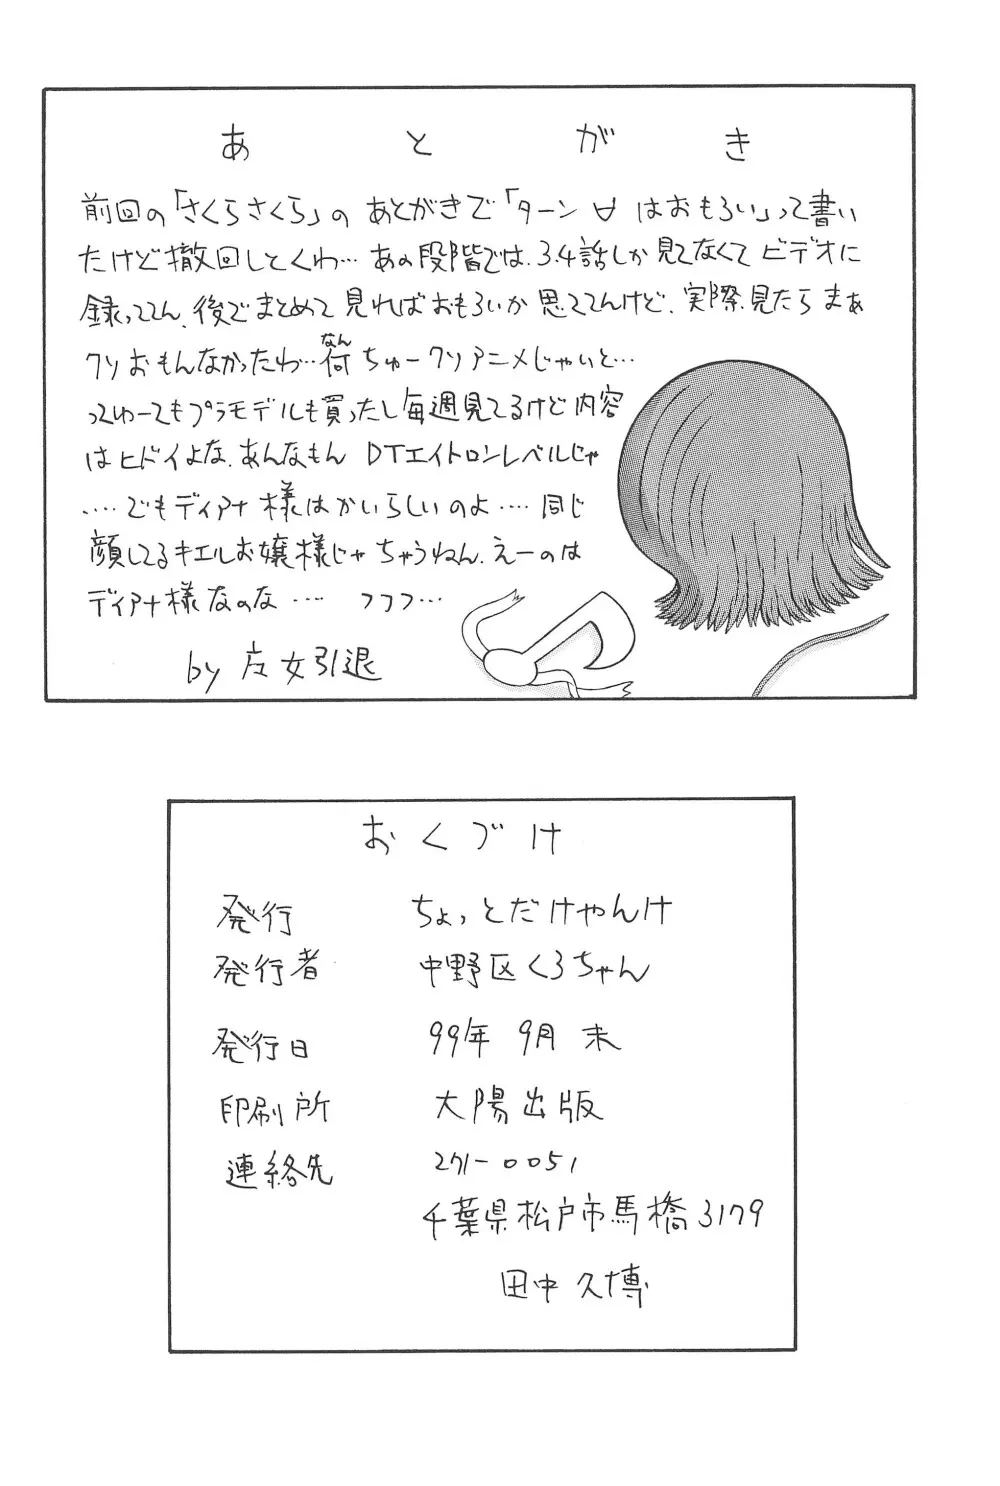 あとがき
前回の「さくらさくら」のあとがきで「ターン∀はおもろい」って書い
たけど撤回しとくわ… あの段階では、3.4話しか見てなくてビデオに
録っててん、後でまとめて見ればおもろいか思ててんけど、実際見たらまぁ
クソおもんなかったわ…何ちゅークソアニメじゃいと…
なん
ってゆーてもプラモデルも買ったし毎週見てるけど内容
はヒドイよな、あんなもん DTエイトロンレベルじゃ
‥‥でもディアナ様はかいらしいのよ‥‥同じ
顔してるキエルお嬢様じゃちゃうねん、えーのは
ディアナ様なのな‥‥ フフフ…
by 友女引退
おくづけ
発行 ちょっとだけやんけ
発行者 中野区くろちゃん
発行日 99年 9月 末
印刷所 大陽出版
連絡先 271-0051
千葉県松戸市馬橋3179
田中久博